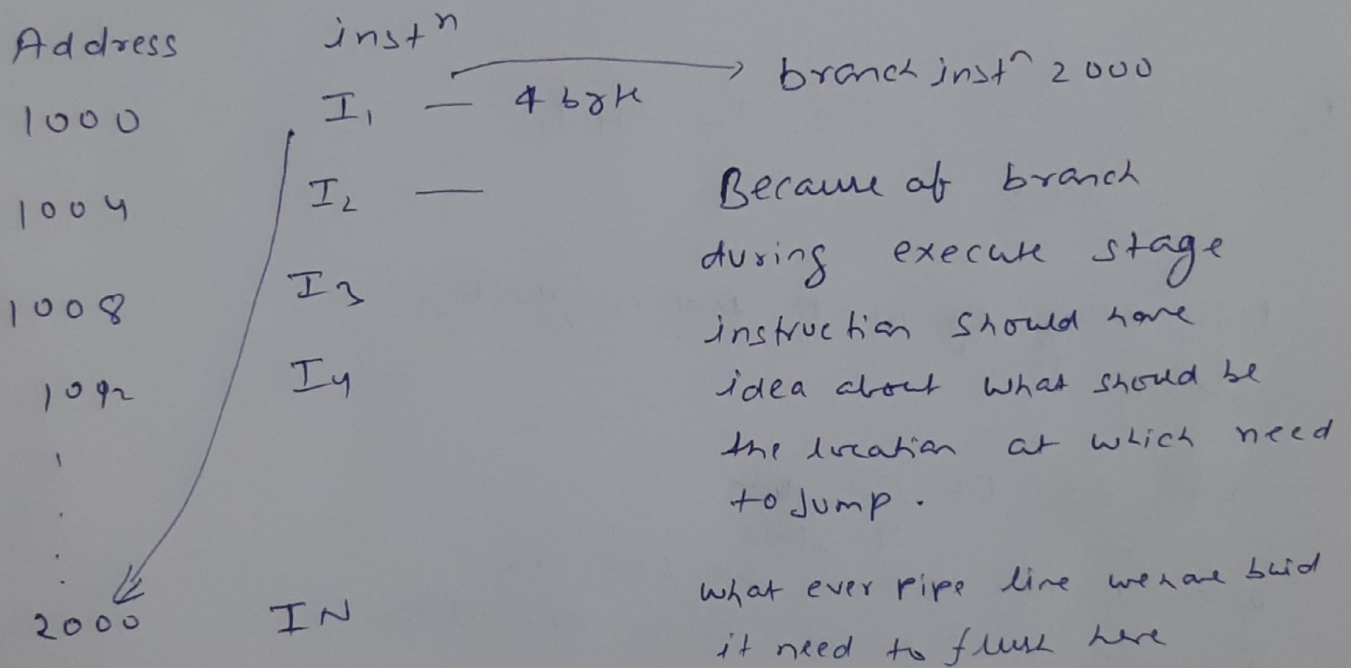 Address instⁿ
1000 I₁ — 4 byte → branch instⁿ 2000
1004 I₂ —
1008 I₃
1092 I₄
2000 IN
Because of branch
during execute stage
instruction should have
idea about what should be
the location at which need
to Jump.
what ever pipe line we have buid
it need to flush here